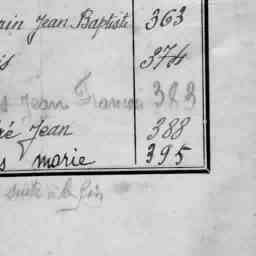 rin Jean Baptiste 363
is 374
s Jean Francois 383
ré Jean 388
s marie 395
suite à la fin